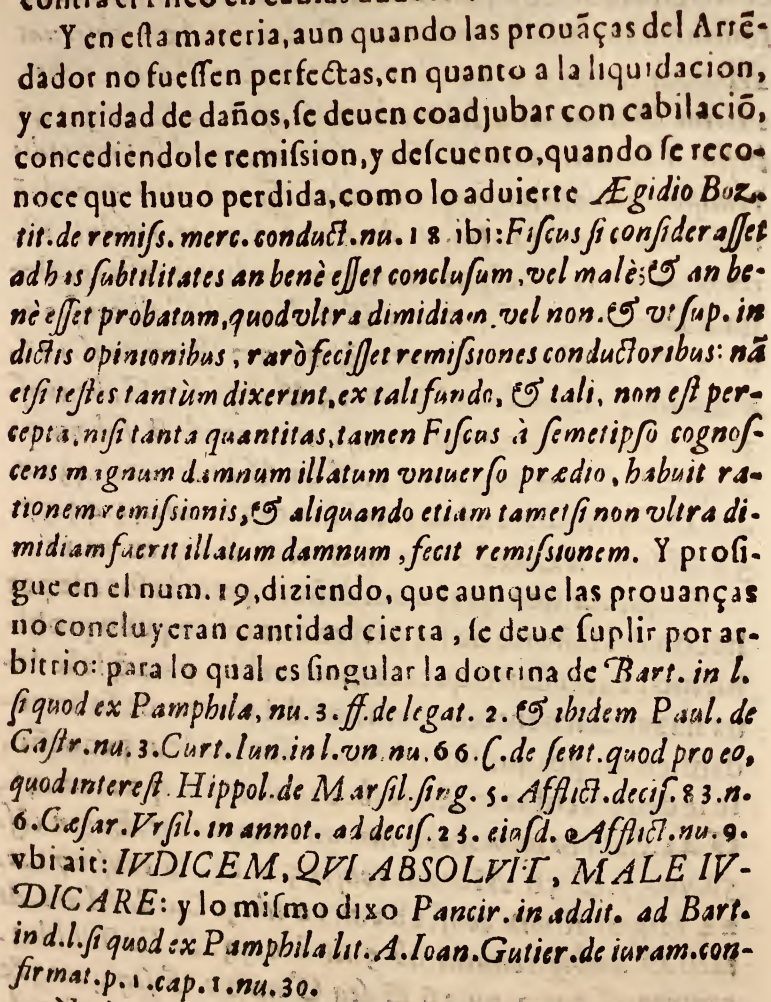 Y en eſta materia, aun quando las prouãças del Arrē-
dador no fueſſen perfectas, en quanto a la liquidacion,
y cantidad de daños, ſe deuen coadjubar con cabilaciõ,
concediendole remiſsion, y deſcuento, quando ſe reco-
noce que huuo perdida, como lo aduierte Ægidio Boz.
tit. de remiſs. merc. conduct. nu. 18 ibi: Fiſcus ſi conſideraſſet
ad has ſubtilitates an benè eſſet concluſum, vel malè; & an be-
nè eſſet probatum, quod vltra dimidiam, vel non. & vt ſup. in
dictis opinionibus, rarò feciſſet remiſsiones conductoribus: nã
etſi teſtes tantùm dixerint, ex tali fundo, & tali, non eſt per-
cepta, niſi tanta quantitas, tamen Fiſcus à ſemetipſo cognoſ-
cens magnum damnum illatum vniuerſo prædio, habuit ra-
tionem remiſsionis, & aliquando etiam tametſi non vltra di-
midiam fuerit illatum damnum, fecit remiſsionem. Y proſi-
gue en el num. 19, diziendo, que aunque las prouanças
no concluyeran cantidad cierta, ſe deue ſuplir por ar-
bitrio: para lo qual es ſingular la dotrina de Bart. in l.
ſi quod ex Pamphila, nu. 3. ff. de legat. 2. & ibidem Paul. de
Caſtr. nu. 3. Curt. Iun. in l. vn. nu. 66. C. de ſent. quod pro eo,
quod intereſt. Hippol. de Marſil. ſing. 5. Afflict. deciſ. 83. n.
6. Cæſar. Vrſil. in annot. ad deciſ. 23. eiuſd. Afflict. nu. 9.
vbi ait: IVDICEM, QVI ABSOLVIT, MALE IV-
DICARE: y lo miſmo dixo Pancir. in addit. ad Bart.
in d. l. ſi quod ex Pamphila lit. A. Ioan. Gutier. de iuram. con-
firmat. p. 1. cap. 1. nu. 30.